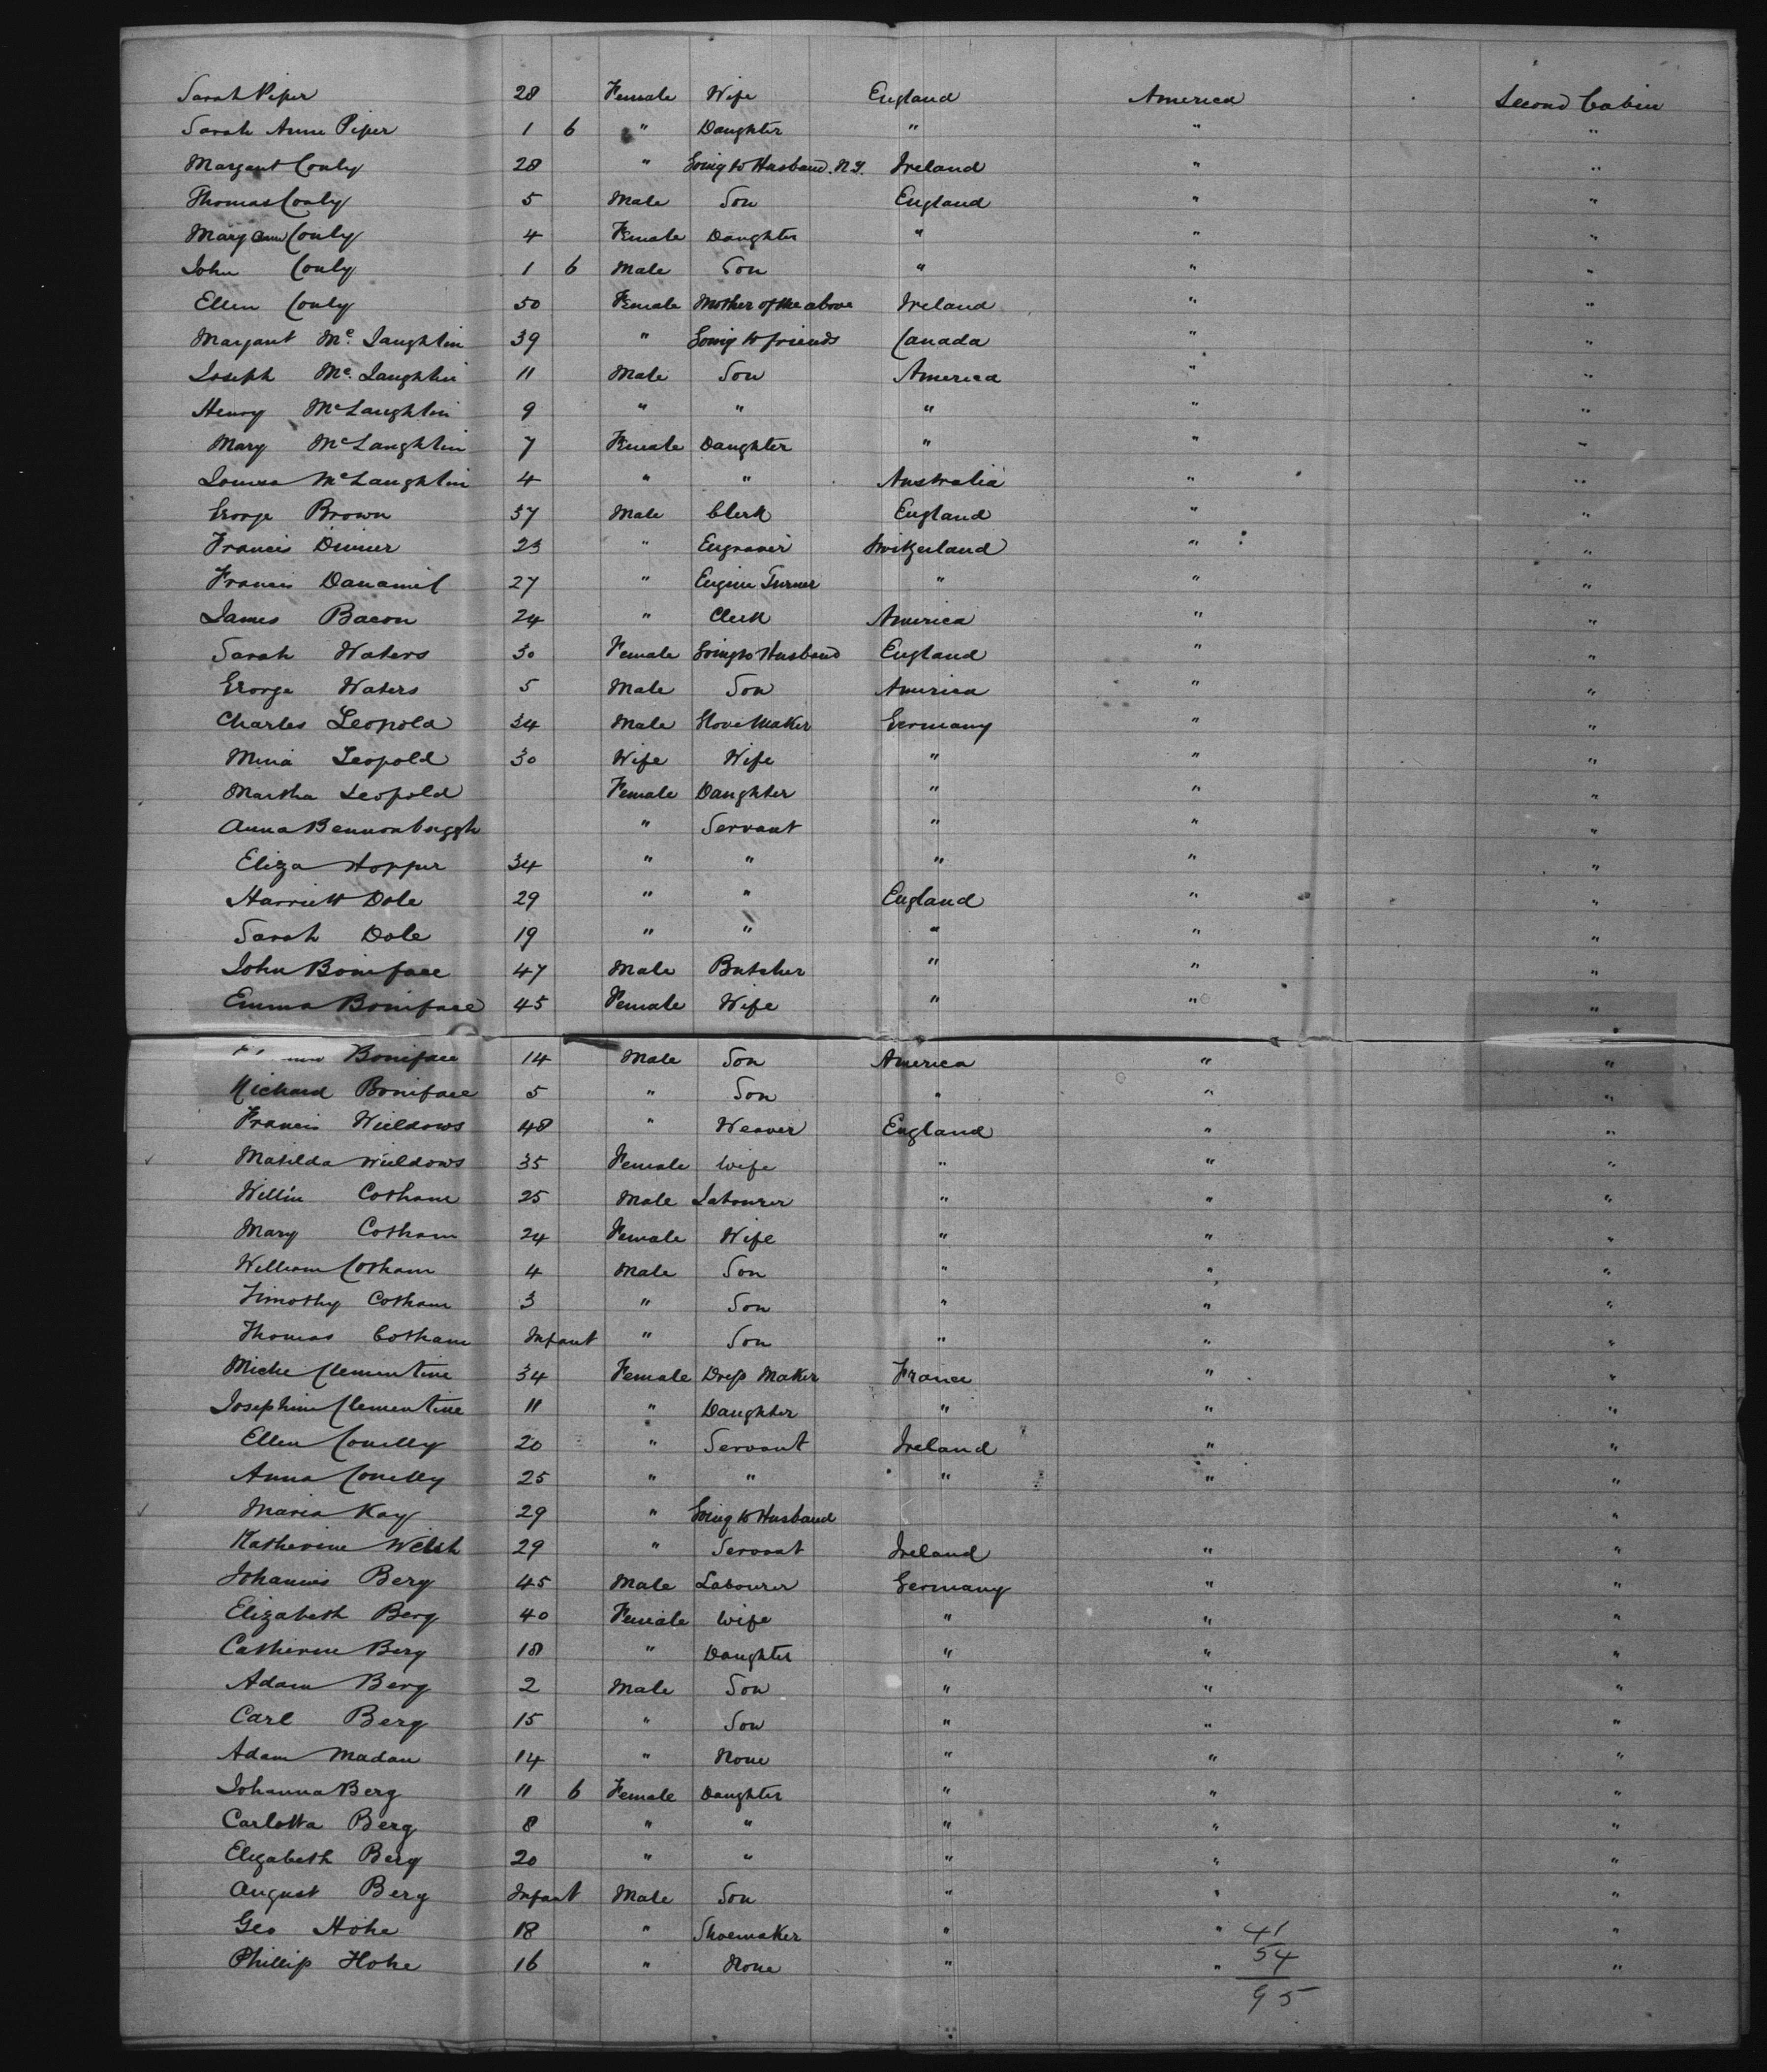 Sarah Piper 28 Female Wife England America Second Cabin
Sarah Anne Piper 1 6 " Daughter " " "
Margaret Conly 28 " Going to Husband. N.Y. Ireland " "
Thomas Conly 5 Male Son England " "
Mary Ann Conly 4 Female Daughter " " "
John Conly 1 6 Male Son " " "
Ellen Conly 50 Female Mother of the above Ireland " "
Margaret Mc Laughlin 39 " Going to friends Canada " "
Joseph Mc Laughlin 11 Male Son America " "
Henry McLaughlin 9 " " " " "
Mary McLaughlin 7 Female Daughter " " "
Louisa McLaughlin 4 " " Australia " "
George Brown 37 Male Clerk England " "
Francis 23 " Engraver Switzerland " "
Francis 27 " Engine Turner " " "
James Bacon 24 " Clerk America " "
Sarah Waters 30 Female Going to Husband England " "
George Waters 5 Male Son America " "
Charles Leopold 34 Male Maker Germany " "
Mina Leopold 30 Wife Wife " " "
Martha Leopold Female Daughter " " "
Anna " Servant " " "
Eliza Hopper 34 " " " " "
Harriett Dole 29 " " England " "
Sarah Dole 19 " " " " "
John Boniface 47 Male Butcher " " "
Emma Boniface 45 Female Wife " " "
Boniface 14 Male Son America " "
Richard Boniface 5 " Son " " "
Francis Wieldows 48 " Weaver England " "
Matilda Wieldows 35 Female Wife " " "
Willin Cotham 25 Male Labourer " " "
Mary Cotham 24 Female Wife " " "
William Cotham 4 Male Son " " "
Timothy Cotham 3 " Son " " "
Thomas Cotham Infant " Son " " "
Miche Clementine 34 Female Dress Maker France " "
Josephine Clementine 11 " Daughter " " "
Ellen Conelly 20 " Servant Ireland " "
Anna Conelly 25 " " " " "
Maria Kay 29 " Going to Husband "
Katherine Welsh 29 " Servant Ireland " "
Johannis Berg 45 Male Labourer Germany " "
Elizabeth Berg 40 Female Wife " " "
Catherine Berg 18 " Daughter " " "
Adam Berg 2 Male Son " " "
Carl Berg 15 " Son " " "
Adam Madan 14 " None " " "
Johanna Berg 11 6 Female Daughter " " "
Carlotta Berg 8 " " " " "
Elizabeth Berg 20 " " " " "
August Berg Infant Male Son " " "
Geo Hohe 18 " Shoemaker " " 41 "
Phillip Hohe 16 " None " " 54 "
95